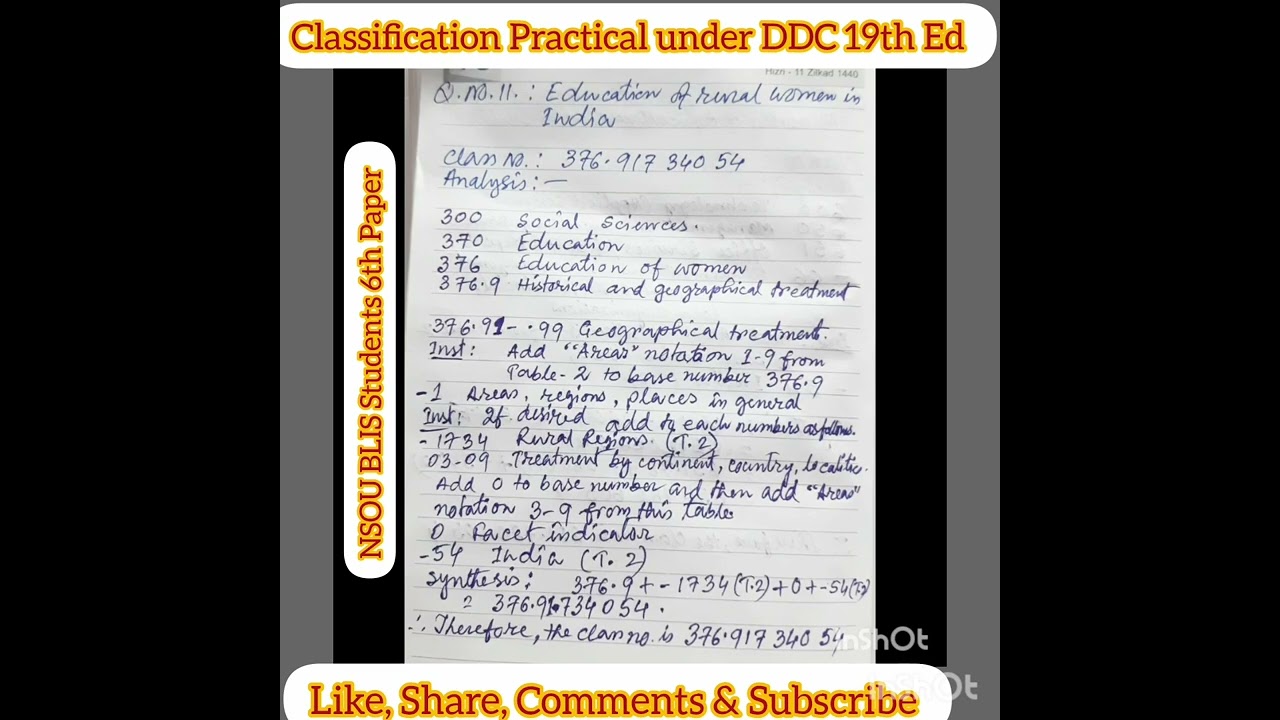 Classification Practical under DDC 19th Ed
Hizri - 11 Zilkad 1440
NSOU BLIS Students 6th Paper
Q.NO.11. : Education of rural women in
India
Class No. : 376.917 340 54
Analysis : —
300 Social Sciences.
370 Education
376 Education of women
376.9 Historical and geographical treatment
376.91- .99 Geographical treatment.
Inst: Add "Areas" notation 1-9 from
Table-2 to base number 376.9
-1 Areas, regions, places in general
Inst: If desired add to each numbers as follows.
-1734 Rural Regions. (T.2)
03-09 Treatment by continent, country, localities.
Add 0 to base number and then add "Areas"
notation 3-9 from this table
0 Facet indicator
-54 India (T. 2)
Synthesis: 376.9 + - 1734 (T.2) + 0 + -54 (T.2)
= 376.91734054.
∴ Therefore, the class no. is 376.917 340 54
InShOt
InShOt
Like, Share, Comments & Subscribe